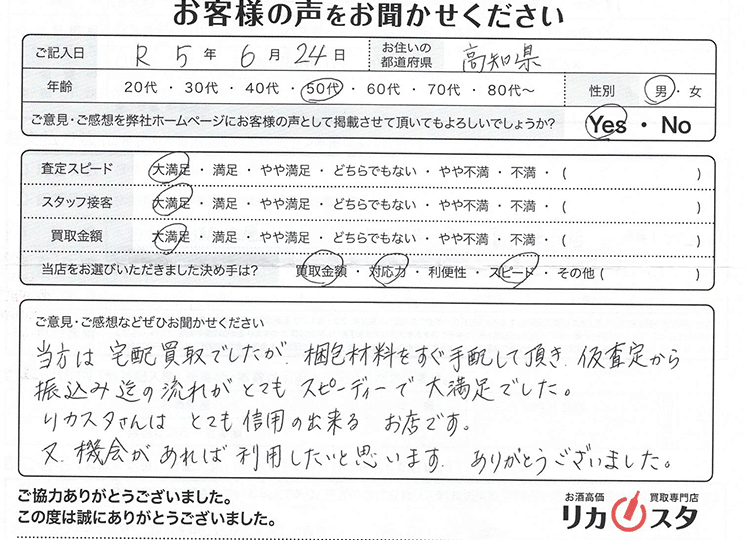 お客様の声をお聞かせください
ご記入日 R 5 年 6 月 24 日 お住いの都道府県 高知県
年齢 20代 ・ 30代 ・ 40代 ・ 50代 ・ 60代 ・ 70代 ・ 80代〜 性別 男 ・ 女
ご意見・ご感想を弊社ホームページにお客様の声として掲載させて頂いてもよろしいでしょうか? Yes ・ No
査定スピード 大満足 ・ 満足 ・ やや満足 ・ どちらでもない ・ やや不満 ・ 不満 ・ ( )
スタッフ接客 大満足 ・ 満足 ・ やや満足 ・ どちらでもない ・ やや不満 ・ 不満 ・ ( )
買取金額 大満足 ・ 満足 ・ やや満足 ・ どちらでもない ・ やや不満 ・ 不満 ・ ( )
当店をお選びいただきました決め手は? 買取金額 ・ 対応力 ・ 利便性 ・ スピード ・ その他 ( )
ご意見・ご感想などぜひお聞かせください
当方は 宅配買取でしたが、梱包材料をすぐ手配して頂き、仮査定から
振込み迄の流れがとても スピーディーで 大満足でした。
リカスタさんは とても 信用の出来る お店です。
又、機会があれば 利用したいと思います。 ありがとうございました。
ご協力ありがとうございました。
この度は誠にありがとうございました。
お酒高価 買取専門店
リカスタ